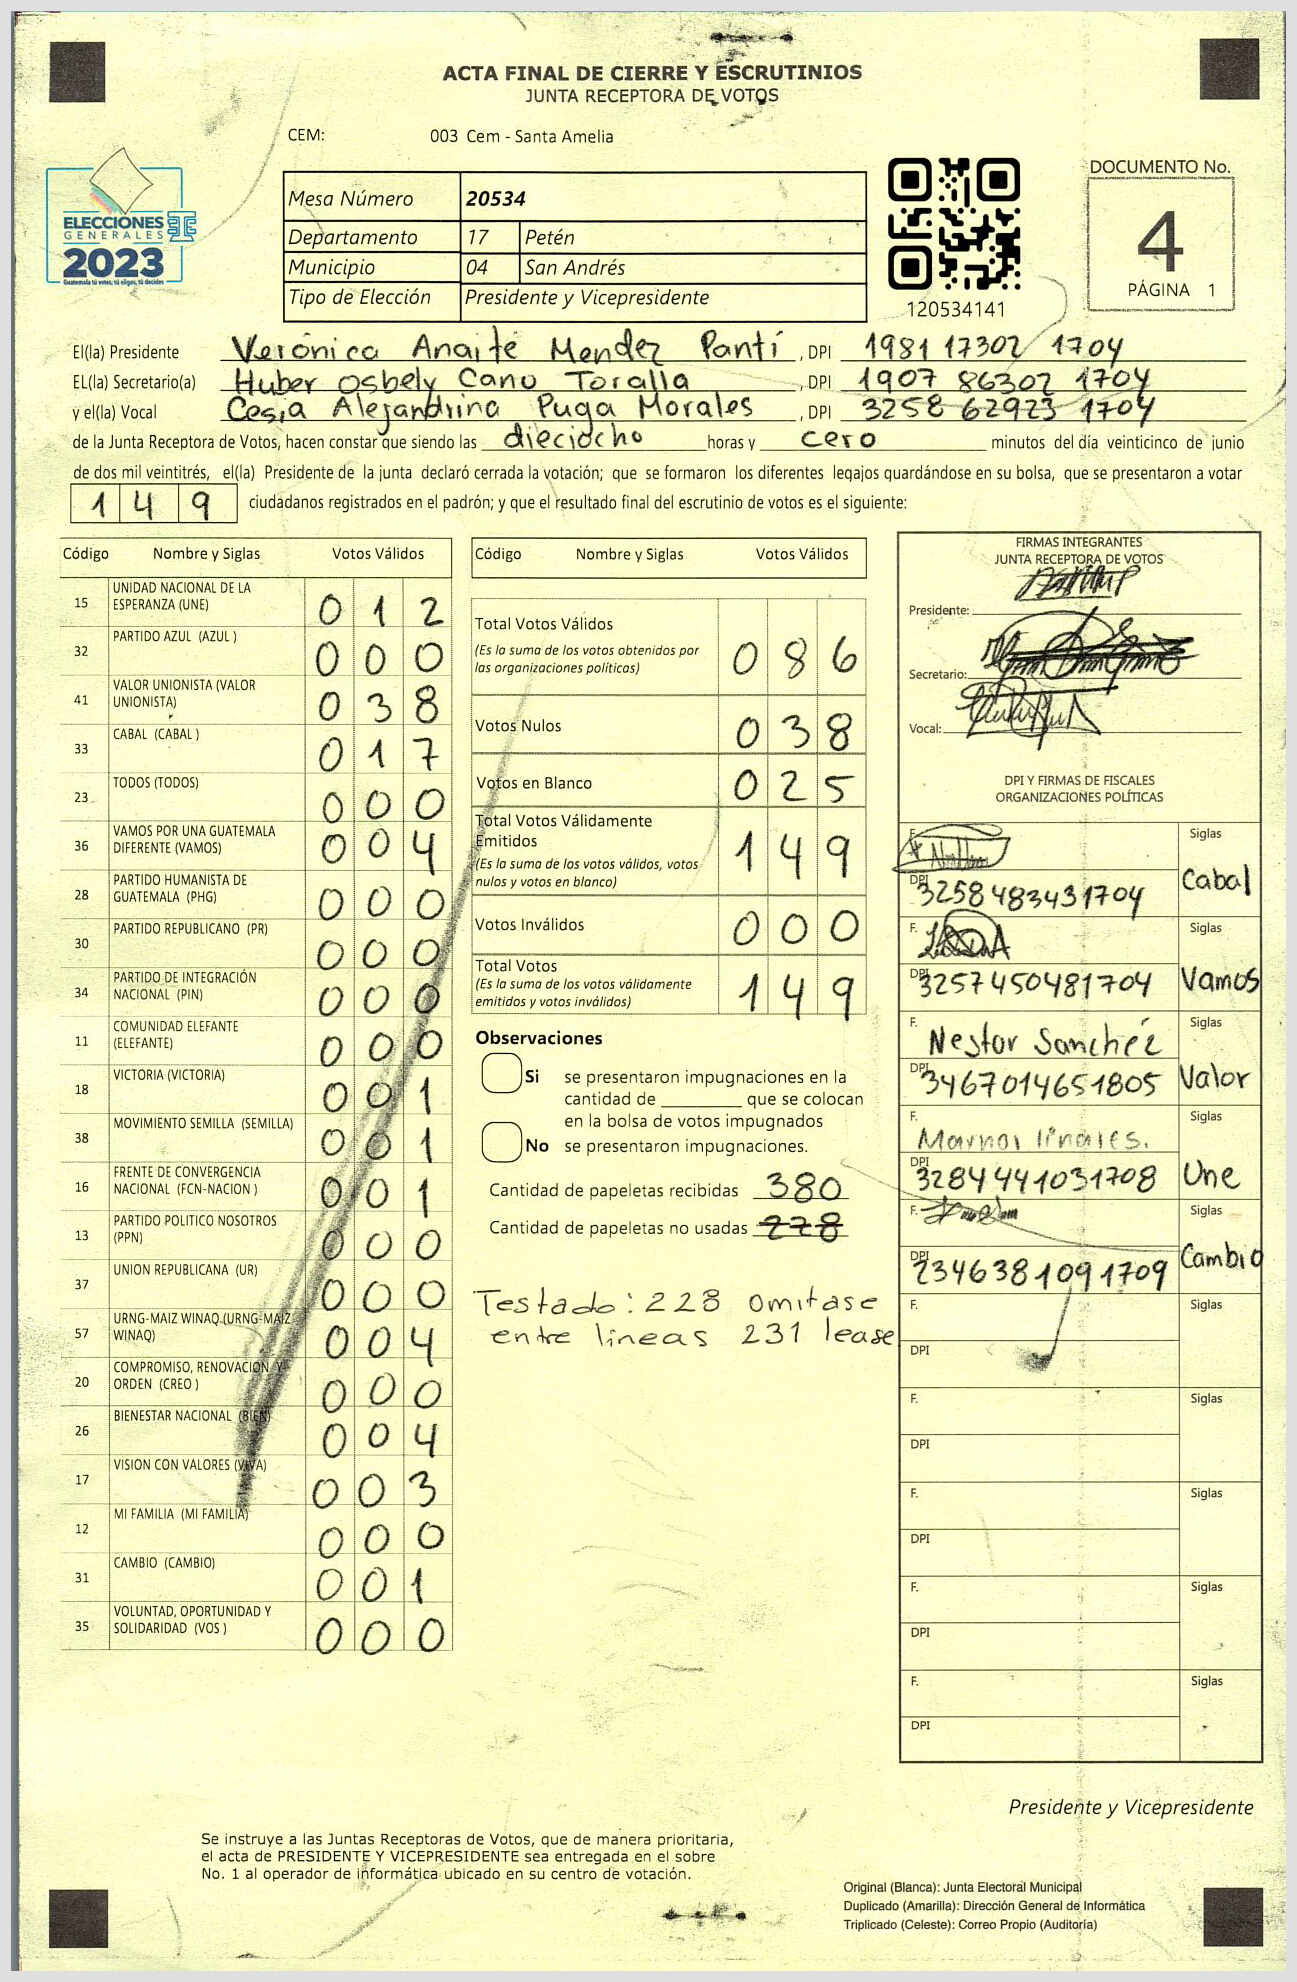 ACTA FINAL DE CIERRE Y ESCRUTINIOS
JUNTA RECEPTORA DE VOTOS
CEM: 003 Cem - Santa Amelia
ELECCIONES
GENERALES
2023
Guatemala tú votes, tú eliges, tú decides
Mesa Número 20534
Departamento 17 Petén
Municipio 04 San Andrés
Tipo de Elección Presidente y Vicepresidente
120534141
DOCUMENTO No.
4
PÁGINA 1
El(la) Presidente Verónica Anaité Mendez Pantí , DPI 1981 17302 1704
EL(la) Secretario(a) Huber Osbely Cano Toralla , DPI 1907 86302 1704
y el(la) Vocal Cesia Alejandrina Puga Morales , DPI 3258 62923 1704
de la Junta Receptora de Votos, hacen constar que siendo las dieciocho horas y cero minutos del día veinticinco de junio
de dos mil veintitrés, el(la) Presidente de la junta declaró cerrada la votación; que se formaron los diferentes legajos quardándose en su bolsa, que se presentaron a votar
149 ciudadanos registrados en el padrón; y que el resultado final del escrutinio de votos es el siguiente:
Código Nombre y Siglas Votos Válidos
15 UNIDAD NACIONAL DE LA ESPERANZA (UNE) 012
32 PARTIDO AZUL (AZUL ) 000
41 VALOR UNIONISTA (VALOR UNIONISTA) 038
33 CABAL (CABAL ) 017
23 TODOS (TODOS) 000
36 VAMOS POR UNA GUATEMALA DIFERENTE (VAMOS) 004
28 PARTIDO HUMANISTA DE GUATEMALA (PHG) 000
30 PARTIDO REPUBLICANO (PR) 000
34 PARTIDO DE INTEGRACIÓN NACIONAL (PIN) 000
11 COMUNIDAD ELEFANTE (ELEFANTE) 000
18 VICTORIA (VICTORIA) 001
38 MOVIMIENTO SEMILLA (SEMILLA) 001
16 FRENTE DE CONVERGENCIA NACIONAL (FCN-NACION ) 001
13 PARTIDO POLITICO NOSOTROS (PPN) 000
37 UNION REPUBLICANA (UR) 000
57 URNG-MAIZ WINAQ (URNG-MAIZ WINAQ) 004
20 COMPROMISO, RENOVACION Y ORDEN (CREO ) 000
26 BIENESTAR NACIONAL (BIEN) 004
17 VISION CON VALORES (VIVA) 003
12 MI FAMILIA (MI FAMILIA) 000
31 CAMBIO (CAMBIO) 001
35 VOLUNTAD, OPORTUNIDAD Y SOLIDARIDAD (VOS ) 000
Código Nombre y Siglas Votos Válidos
Total Votos Válidos 086
(Es la suma de los votos obtenidos por
las organizaciones políticas)
Votos Nulos 038
Votos en Blanco 025
Total Votos Válidamente
Emitidos 149
(Es la suma de los votos válidos, votos
nulos y votos en blanco)
Votos Inválidos 000
Total Votos 149
(Es la suma de los votos válidamente
emitidos y votos inválidos)
Observaciones
Si se presentaron impugnaciones en la
cantidad de ________ que se colocan
en la bolsa de votos impugnados
No se presentaron impugnaciones.
Cantidad de papeletas recibidas 380
Cantidad de papeletas no usadas 228
Testado: 228 omitase
entre lineas 231 lease
FIRMAS INTEGRANTES
JUNTA RECEPTORA DE VOTOS
Presidente:
Secretario:
Vocal:
DPI Y FIRMAS DE FISCALES
ORGANIZACIONES POLÍTICAS
F. Siglas
DPI 3258483431704 Cabal
F. Siglas
DPI 3257450481704 Vamos
F. Nestor Sanchéz Siglas
DPI 3467014651805 Valor
F. linares. Siglas
DPI 3284441031708 Une
F. Siglas
DPI 2346381091709 Cambio
F. Siglas
DPI
F. Siglas
DPI
F. Siglas
DPI
F. Siglas
DPI
F. Siglas
DPI
Presidente y Vicepresidente
Se instruye a las Juntas Receptoras de Votos, que de manera prioritaria,
el acta de PRESIDENTE Y VICEPRESIDENTE sea entregada en el sobre
No. 1 al operador de informática ubicado en su centro de votación.
Original (Blanca): Junta Electoral Municipal
Duplicado (Amarilla): Dirección General de Informática
Triplicado (Celeste): Correo Propio (Auditoría)